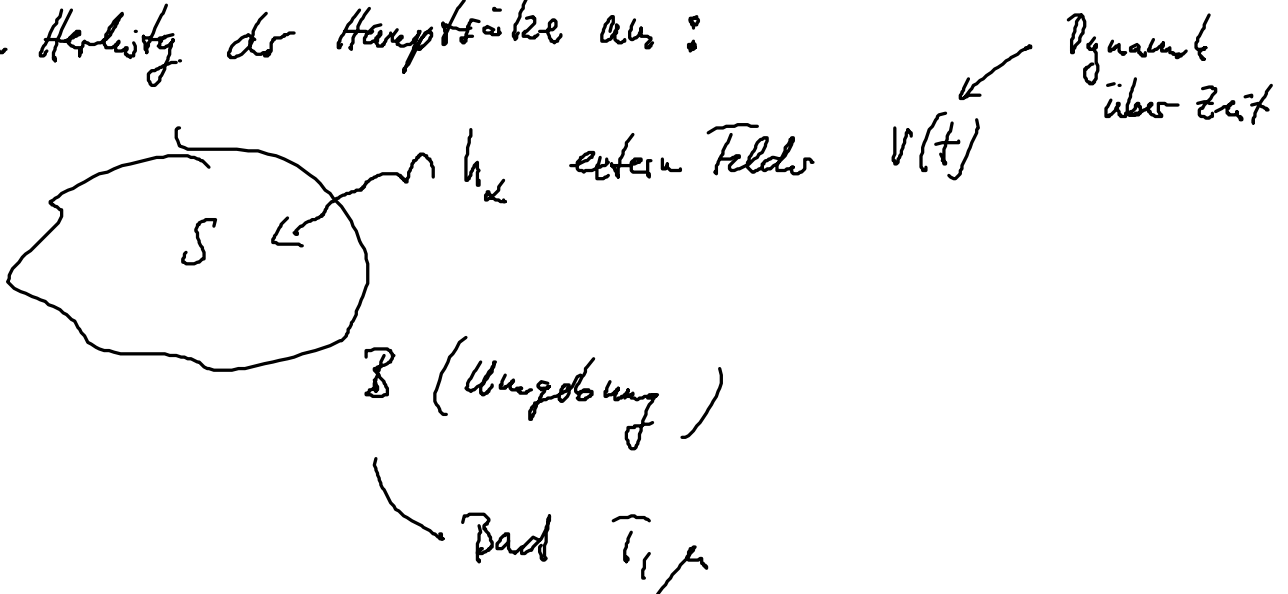 Herleitg. der Hauptsätze an:
Dynamik
über Zeit
h_α extern Felder V(t)
S
B (Umgebung)
Bad T, μ